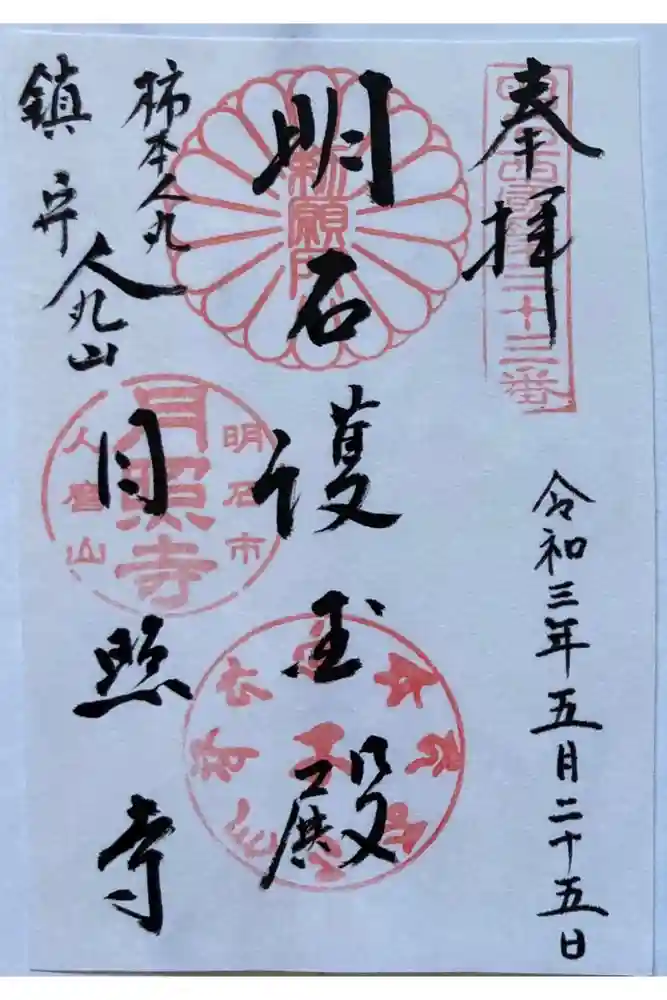 奉拝
令和三年五月二十五日
明石護国殿
柿本人丸
鎮守
人丸山
月照寺
二十三番
明石市
月照寺
人麿山